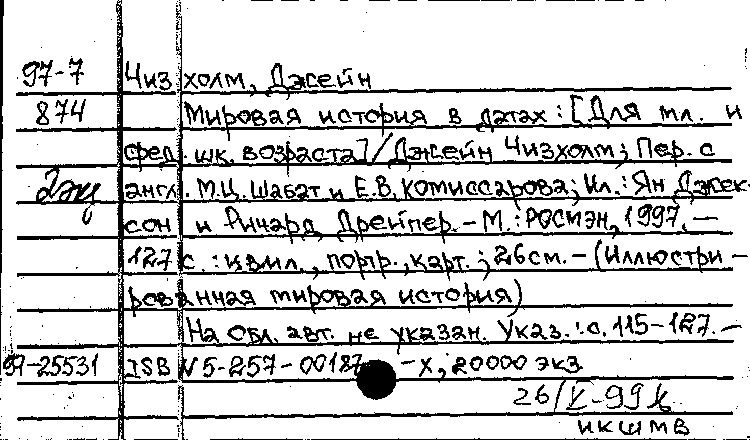 97-7 Чизхолм, Джейн
874 Мировая история в датах: [Для мл. и
сред. шк. возраста] / Джейн Чизхолм; Пер. с
2экз англ. М.Ц. Шабат и Е.В. Комиссарова; Ил.: Ян Джек-
сон и Ричард Дрейпер. - М.: РОСМЭН, 1997. -
127 с.: цв.ил., портр., карт.; 26см. - (Иллюстри-
рованная мировая история)
На обл. авт. не указан. Указ.: с. 115-127. -
97-25531 ISBN 5-257-00187-X, 20000 экз
26/V-99
ИКШМВ